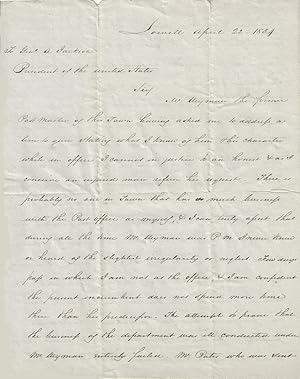 Lowell April 22 1834
To Genl A Jackson
President of the United States
Sir
Mr Wyman the former
Post Master of this Town having asked me to address a
line to you stating what I know of him & his character
while in office I cannot in justice to an honest & as I
conceive an injured man refuse his request. There is
probably no one in Town that has so much business
with the Post office as myself, & I can truly assert that
during all the time Mr Wyman was P M I never knew
or heard of the slightest irregularity or neglect Few days
pass in which I am not at the office & I am confident
the present incumbent does not spend more time
there than his predecessor. The attempt to prove that
the business of the department was ill conducted under
Mr Wyman entirely failed. Mr Pates who was sent